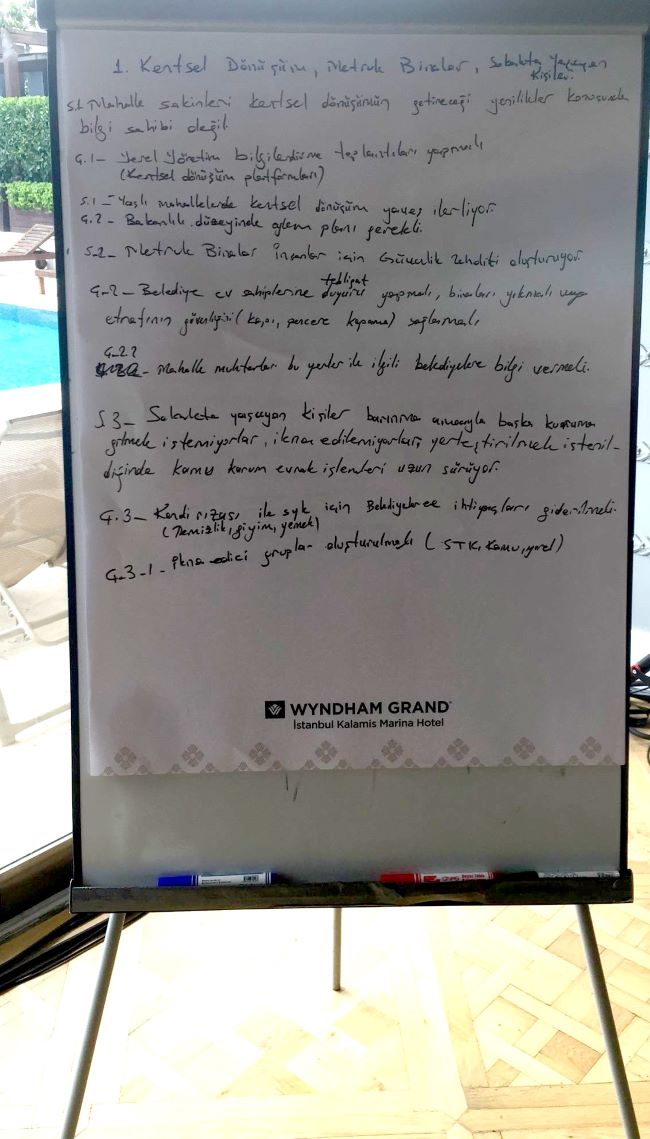 1. Kentsel Dönüşüm, Metruk Binalar, Sokakta Yaşayan
Kişiler.
S.1 Mahalle sakinleri kentsel dönüşümün getireceği yenilikler konusunda
bilgi sahibi değil.
Ç.1- Yerel Yönetim bilgilendirme toplantıları yapmalı
(Kentsel dönüşüm platformları)
S.1- Yaşlı mahallelerde kentsel dönüşüm yavaş ilerliyor.
Ç.2- Bakanlık düzeyinde eylem planı gerekli.
S-2- Metruk Binalar İnsanlar için Güvenlik tehditi oluşturuyor.
tebligat
Ç-2- Belediye ev sahiplerine duyuru yapmalı, binaları yıkmalı veya
etrafının güvenliğini (kapı, pencere kapama) sağlamalı
Ç-22
- Mahalle muhtarları bu yerler ile ilgili belediyelere bilgi vermeli.
S.3- Sokakta yaşayan kişiler barınma amacıyla başka kuruma
gitmek istemiyorlar, ikna edilemiyorlar, yerleştirilmek isteni-
diğinde kamu kurum evrak işlemleri uzun sürüyor.
Ç.3- Kendi rızası ile için Belediyelerce ihtiyaçları giderilmeli.
(Temizlik, giyim, yemek)
Ç-3-1- İkna edici gruplar oluşturulmalı (STK, Kamu, yerel)
WYNDHAM GRAND
İstanbul Kalamis Marina Hotel